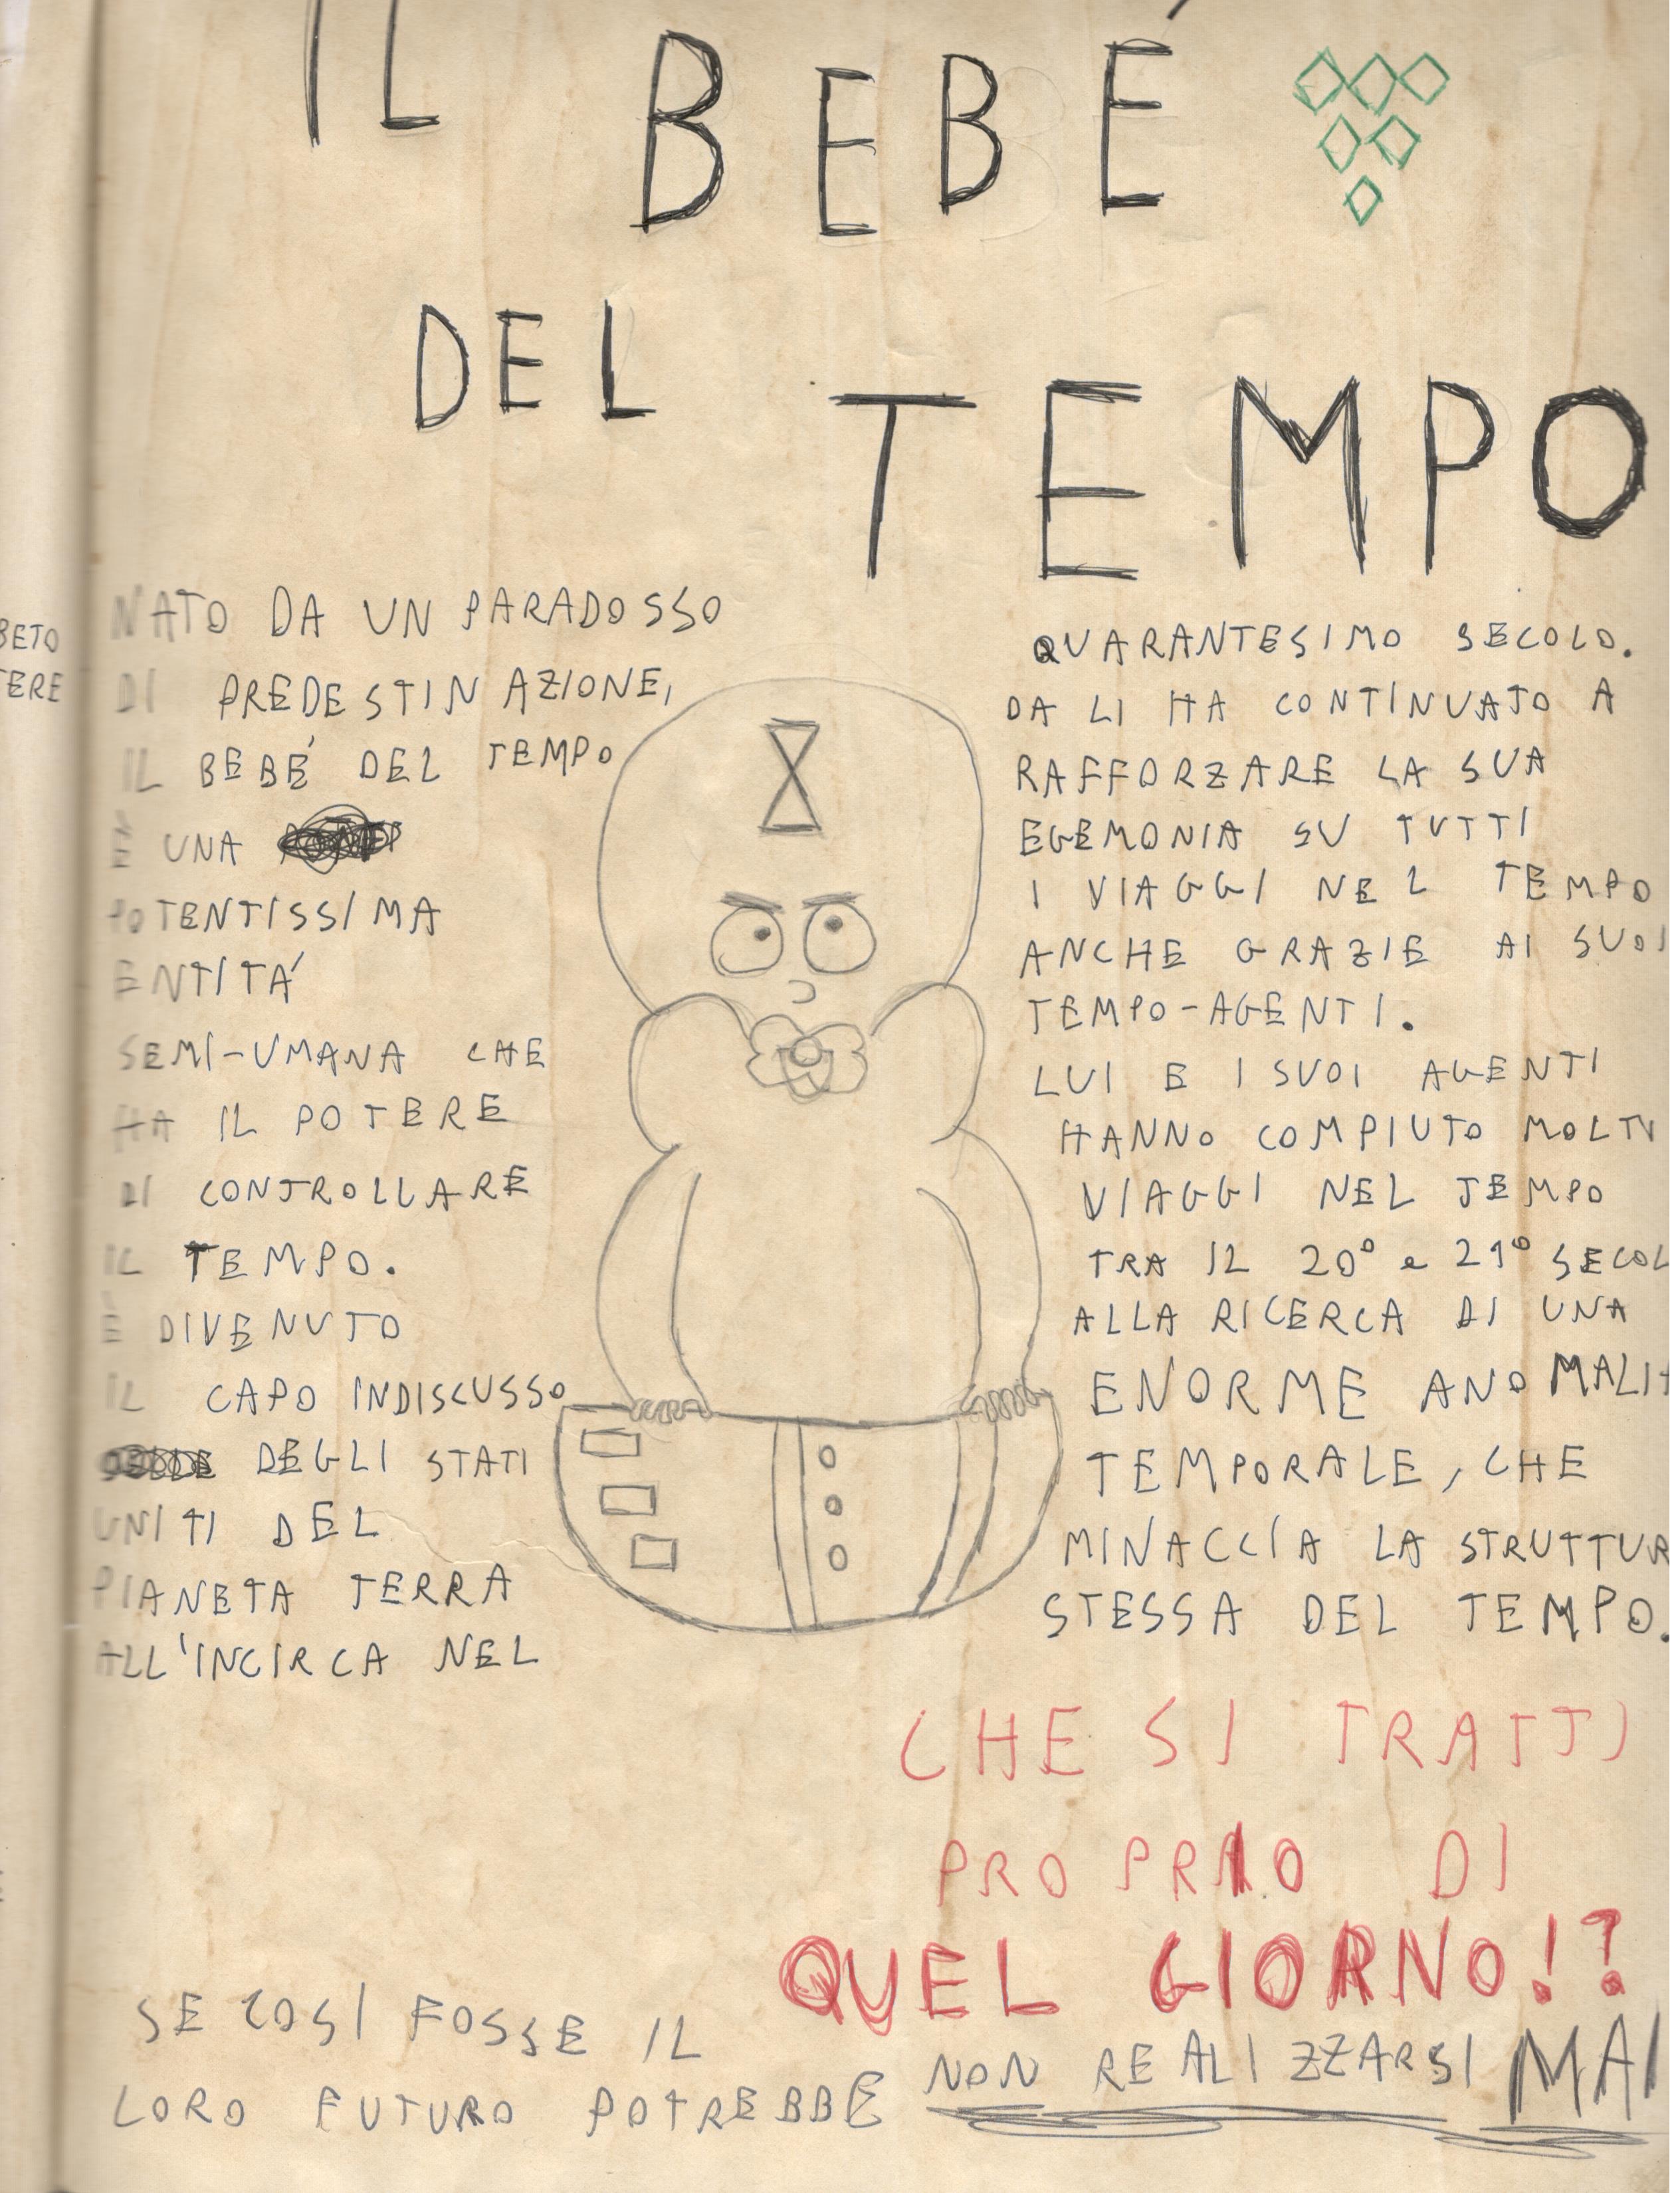 IL BEBÉ
DEL
TEMPO
BETO
TERE
NATO DA UN PARADOSSO
DI PREDESTINAZIONE,
IL BEBÉ DEL TEMPO
È UNA
POTENTISSIMA
ENTITÁ
SEMI-UMANA CHE
HA IL POTERE
DI CONTROLLARE
IL TEMPO.
È DIVENUTO
IL CAPO INDISCUSSO
DEGLI STATI
UNITI DEL
PIANETA TERRA
ALL'INCIRCA NEL
QUARANTESIMO SECOLO.
DA LI HA CONTINUATO A
RAFFORZARE LA SUA
EGEMONIA SU TUTTI
I VIAGGI NEL TEMPO
ANCHE GRAZIE AI SUOI
TEMPO-AGENTI.
LUI E I SUOI AGENTI
HANNO COMPIUTO MOLTI
VIAGGI NEL TEMPO
TRA IL 20° e 21° SECOL
ALLA RICERCA DI UNA
ENORME ANOMALI
TEMPORALE, CHE
MINACCIA LA STRUTTUR
STESSA DEL TEMPO.
CHE SI TRATTI
PROPRIO DI
QUEL GIORNO!?
SE COSI FOSSE IL
LORO FUTURO POTREBBE NON REALIZZARSI MAI